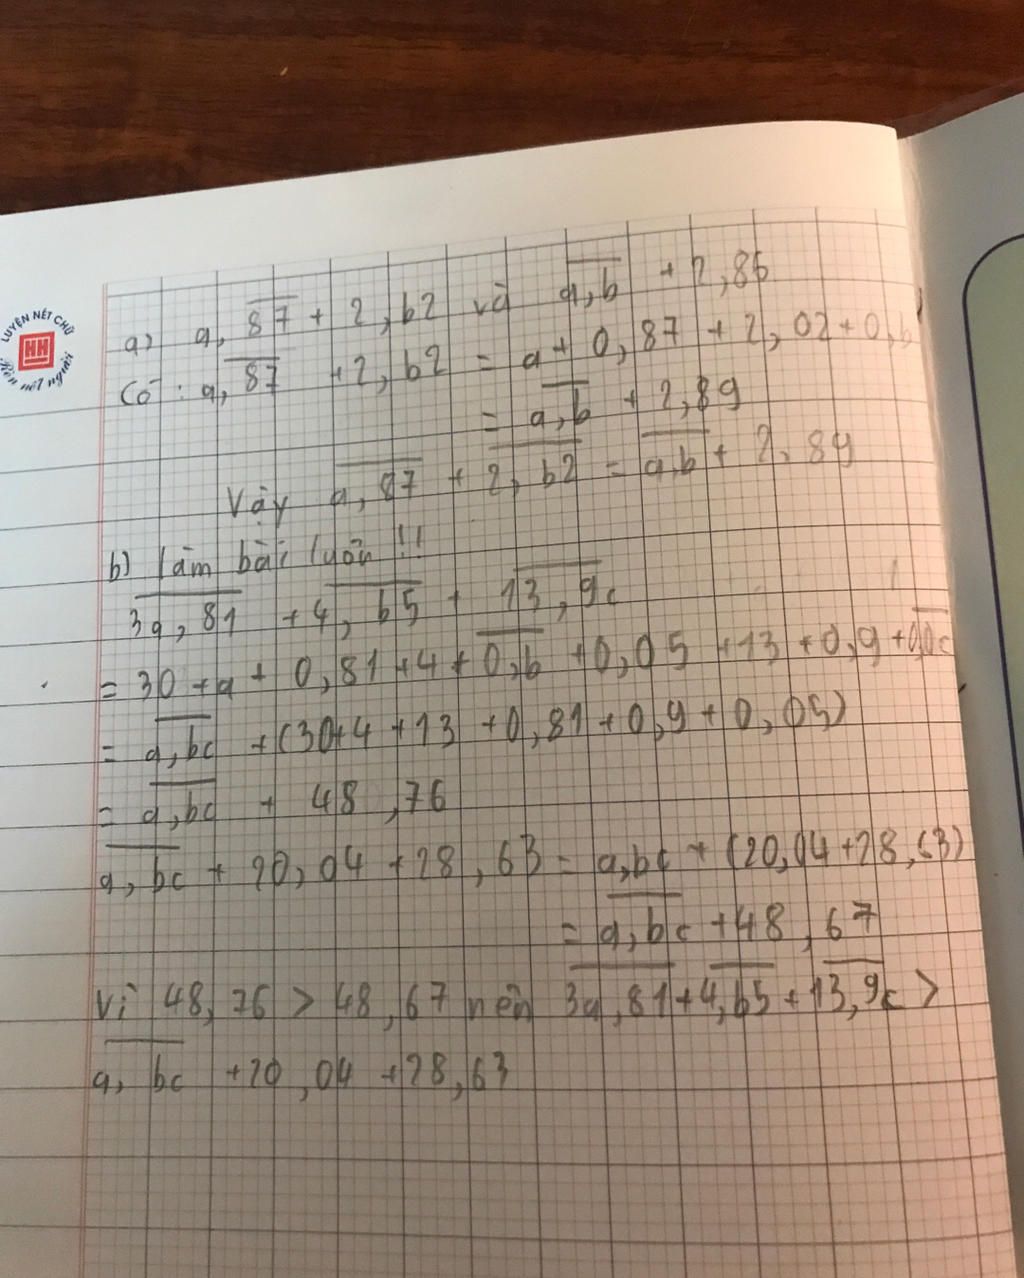 LUYỆN NÉT CHỮ
HH
Rèn nết người
a) a,87 + 2,b2 và a,b + 2,85
Có : a,87 + 2,b2 = a + 0,87 + 2,02 + 0,b
= a,b + 2,89
Vậy a,87 + 2,b2 = a,b + 2,89
b) làm bài luôn !!
3a,81 + 4,b5 + 13,9c
= 30 + a + 0,81 + 4 + 0,b + 0,05 + 13 + 0,9 + 0,0c
= a,bc + (30+4 + 13 + 0,81 + 0,9 + 0,05)
= a,bc + 48,76
a,bc + 20,04 + 28,63 = a,bc + (20,04 + 28,63)
= a,bc + 48,67
Vì 48,76 > 48,67 nên 3a,81 + 4,b5 + 13,9c >
a,bc + 20,04 + 28,63